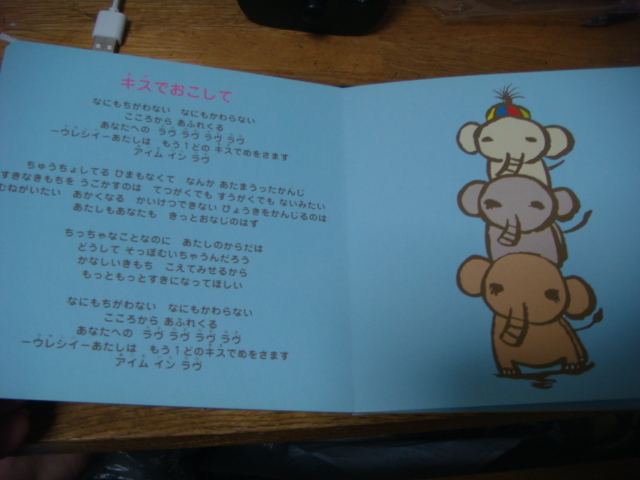 キスでおこして
なにもちがわない なにもかわらない
こころから あふれくる
あなたへの ラヴ ラヴ ラヴ ラヴ
ーウレシイーあたしは もう1どの キスでめをさます
アイム イン ラヴ
ちゅうちょしてる ひまもなくて なんか あたまうったかんじ
すきなきもちを うごかすのは てつがくでも すうがくでも ないみたい
むねがいたい あかくなる かいけつできない ひょうきをかんじるのは
あたしもあなたも きっとおなじのはず
ちっちゃなことなのに あたしのからだは
どうして そっぽむいちゃうんだろう
かなしいきもち こえてみせるから
もっともっとすきになってほしい
なにもちがわない なにもかわらない
こころから あふれくる
あなたへの ラヴ ラヴ ラヴ ラヴ
ーウレシイーあたしは もう1どのキスでめをさます
アイム イン ラヴ